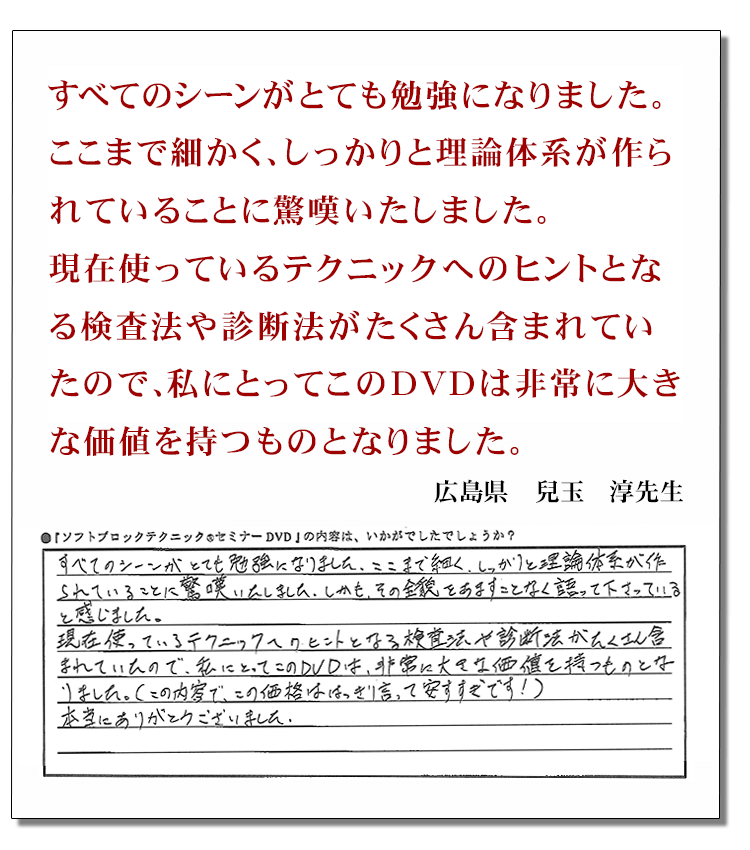 すべてのシーンがとても勉強になりました。
ここまで細かく、しっかりと理論体系が作ら
れていることに驚嘆いたしました。
現在使っているテクニックへのヒントとな
る検査法や診断法がたくさん含まれてい
たので、私にとってこのDVDは非常に大き
な価値を持つものとなりました。
広島県　兒玉　淳先生
●『ソフトブロックテクニック®セミナーDVD』の内容は、いかがでしたでしょうか？
すべてのシーンがとても勉強になりました。ここまで細く、しっかりと理論体系が作
られていることに驚嘆いたしました。しかも、その全貌をあますことなく語って下さっている
と感じました。
現在使っているテクニックへのヒントとなる検査法や診断法がたくさん含
まれていたので、私にとってこのDVDは、非常に大きな価値を持つものとな
りました。(この内容で、この価格ははっきり言って安すぎです！)
本当にありがとうございました。